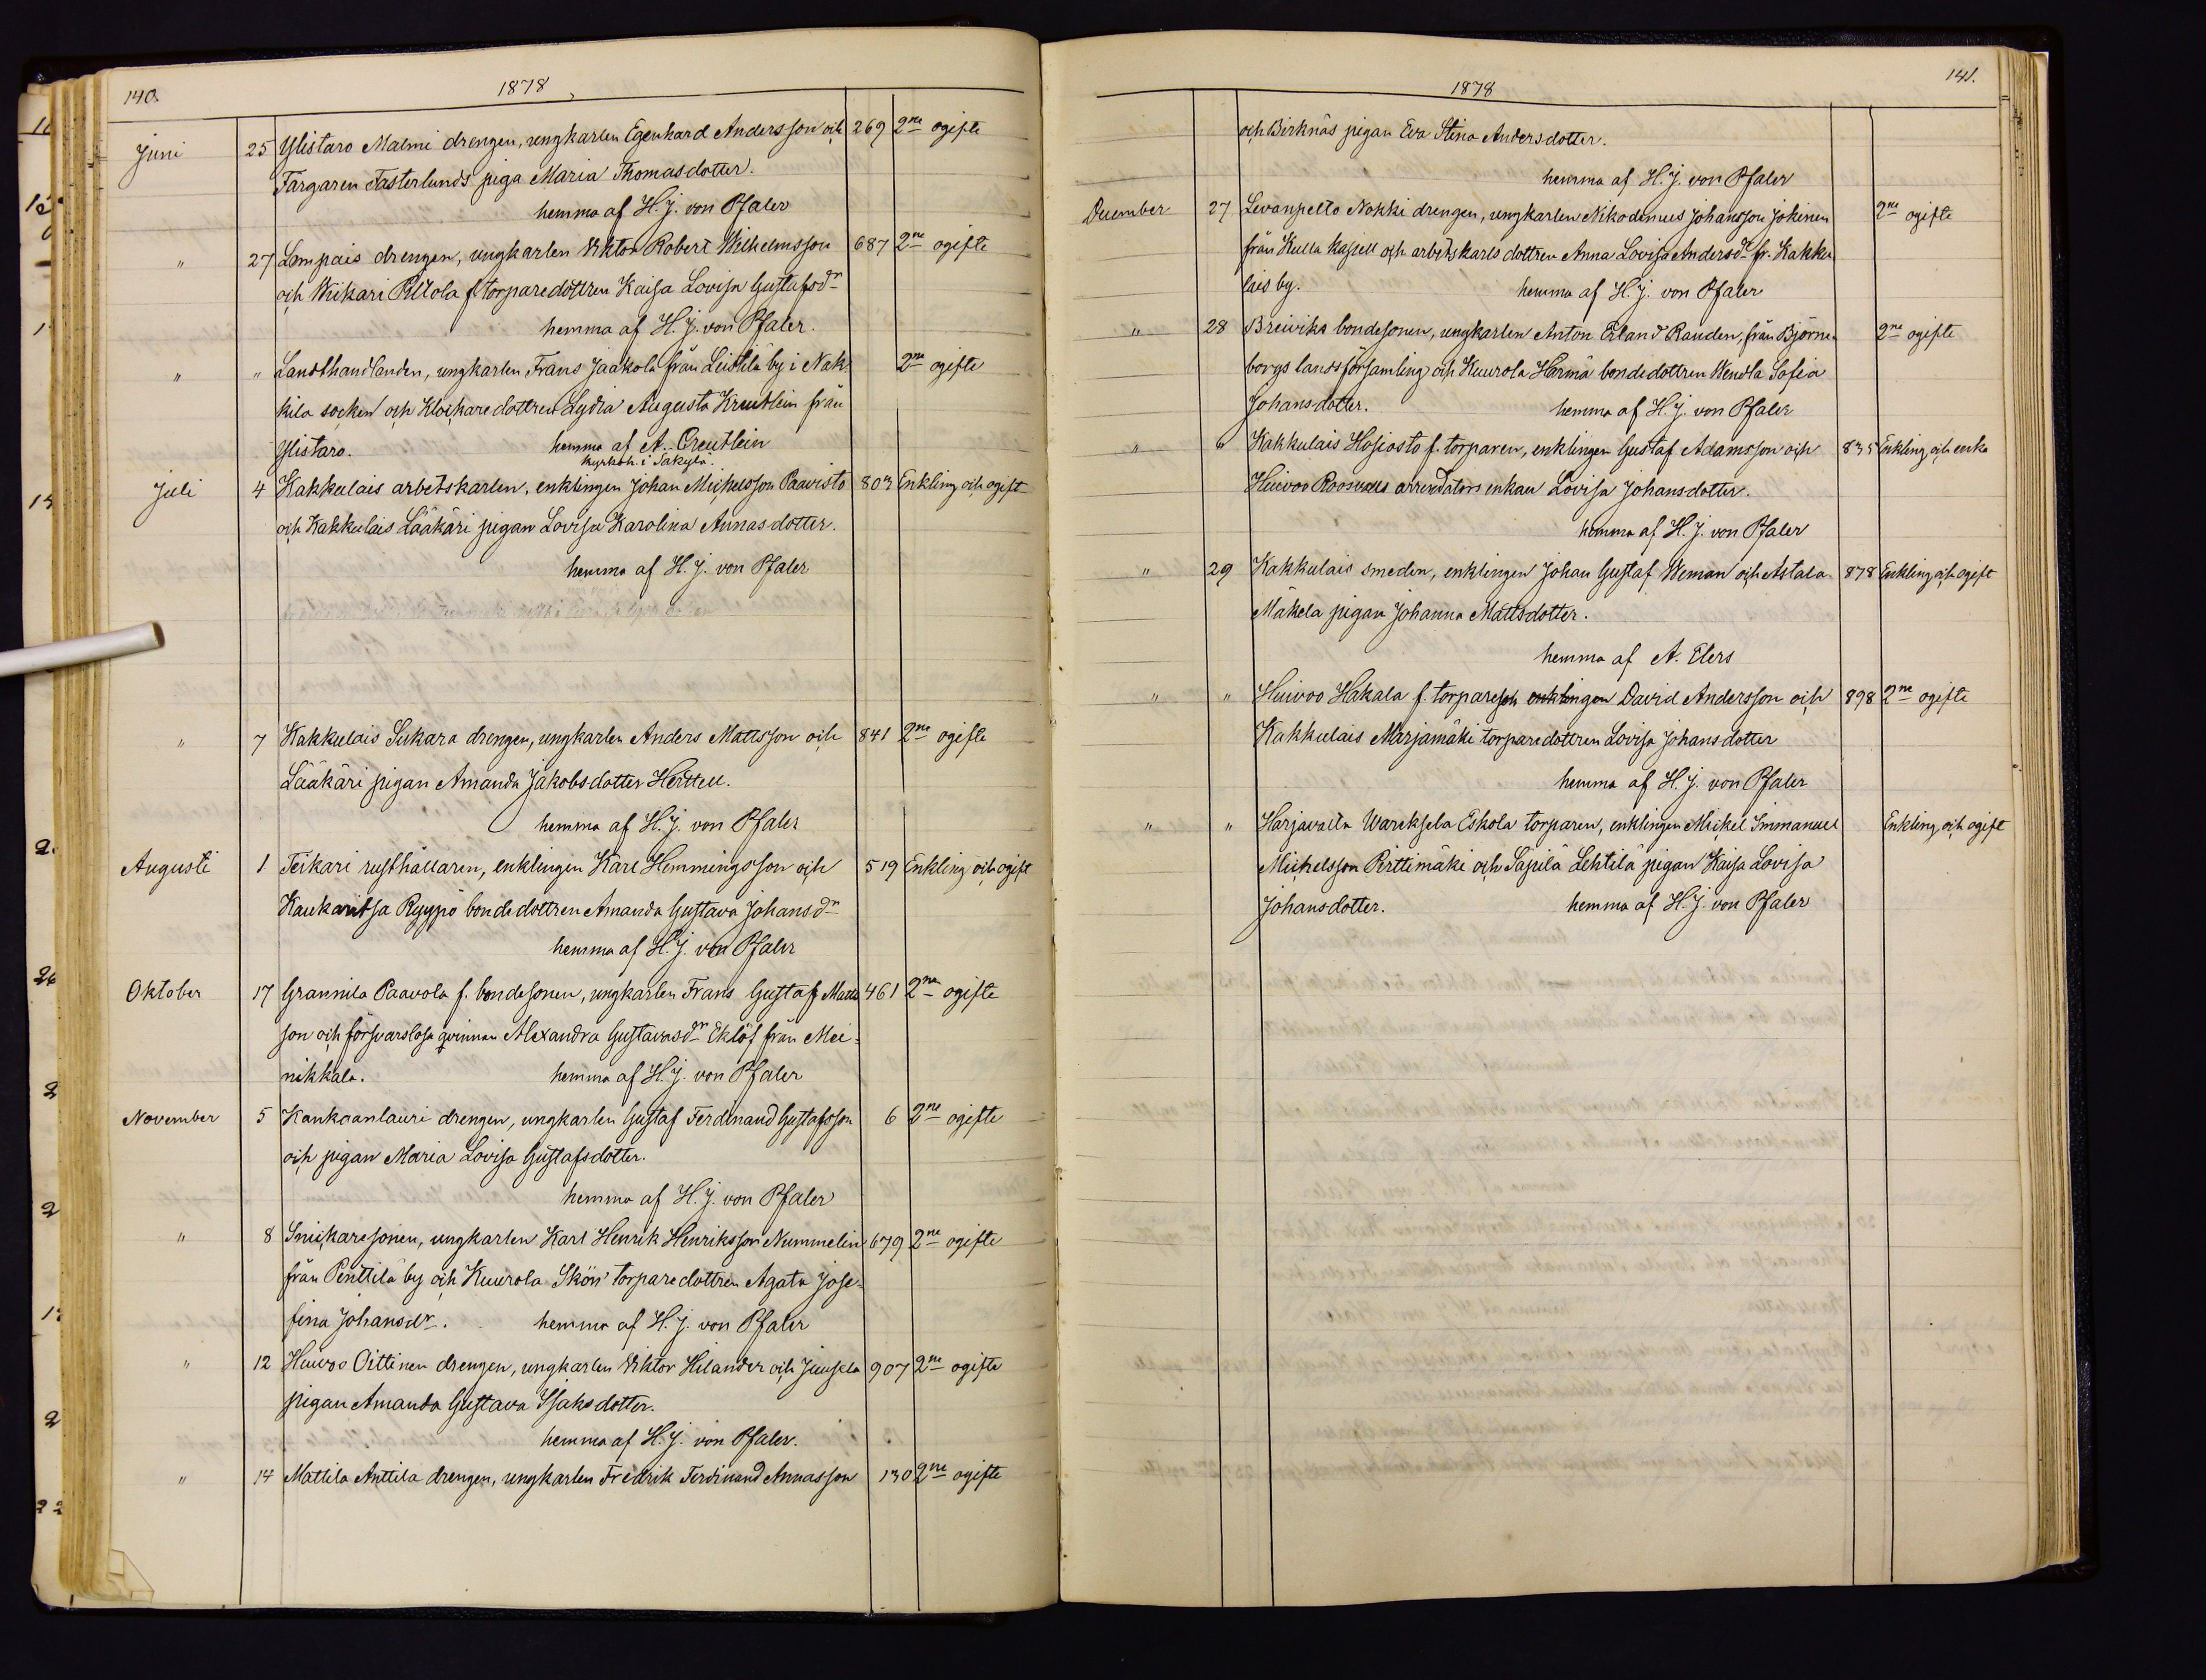 140.
1878
Juni 25 Ylistaro Malmi drengen, ungkarlen Egenhard Andersson och 269 2ne ogifte
Färgaren Fasterlunds piga Maria Thomasdotter.
hemma af H. J. von Pfaler
" 27 Lampais drengen, ungkarlen Viktor Robert Wilhelmsson 687 2ne ogifte
och Wiikari Piltola f. torparedottren Kaisa Lovisa Gustafsdr
hemma af H. J. von Pfaler.
" " Landthandlanden, ungkarlen Frans Jaakola från Leistilä by i Nak- 2ne ogifte
kila socken och Klockaredottren Lydia Augusta Kreutlein från
Ylistaro. hemma af A. Creutlein
kyrkoh. i Säkylä.
Juli 4 Kakkulais arbetskarlen, enklingen Johan Michelsson Paavisto 803 Enkling och ogift
och Kakkulais Lääkäri pigan Lovisa Karolina Annasdotter.
hemma af H. J. von Pfaler
" 7 Kakkulais Sukara drengen, ungkarlen Anders Mattsson och 841 2ne ogifte
Lääkäri pigan Amanda Jakobsdotter Hertteu.
hemma af H. J. von Pfaler
Augusti 1 Teikari rusthållaren, enklingen Karl Hemmingsson och 519 Enkling och ogift
Kaukaritsa Ryypö bondedottren Amanda Gustava Johansdr
hemma af H. J. von Pfaler
Oktober 17 Grannila Paavola f. bondesonen, ungkarlen Frans Gustaf Matts- 461 2ne ogifte
son och försvarslösa qvinnan Alexandra Gustavasdr Eklöf från Mei-
nikkala. hemma af H. J. von Pfaler
November 5 Kankaanlauri drengen, ungkarlen Gustaf Ferdinand Gustafsson 6 2ne ogifte
och pigan Maria Lovisa Gustafsdotter.
hemma af H. J. von Pfaler
" 8 Snickaresonen, ungkarlen Karl Henrik Henriksson Nummelin 679 2ne ogifte
från Penttilä by och Kuurola Skön' torparedottren Agata Jose-
fina Johansdr. hemma af H. J. von Pfaler
" 12 Huivoo Oittinen drengen, ungkarlen Viktor Hilander och Juusela 907 2ne ogifte
pigan Amanda Gustava Isaksdotter.
hemma af H. J. von Pfaler.
" 14 Mattila Anttila drengen, ungkarlen Fredrik Ferdinand Annasson 130 2ne ogifte
141.
1878
och Birknäs pigan Eva Stina Andersdotter.
hemma af H. J. von Pfaler
December 27 Levanpelto Nokki drengen, ungkarlen Nikodemus Johansson Jokinen 2ne ogifte
från Kulla kapell och arbetskarls dottren Anna Lovisa Andersdr fr. Kakku-
lais by. hemma af H. J. von Pfaler
" 28 Breiviks bondesonen, ungkarlen Anton Erland Randen, från Björne- 2ne ogifte
borgs landsförsamling och Kuurola Härmä bondedottren Wendla Sofia
Johansdotter. hemma af H. J. von Pfaler
" " Kakkulais Hosiosto f. torparen, enklingen Gustaf Adamsson och 835 Enkling och enka
Huivoo arrendators enkan Lovisa Johansdotter.
hemma af H. J. von Pfaler
" 29 Kakkulais smeden, enklingen Johan Gustaf Weman och Astala 878 Enkling och ogift
Mäkelä pigan Johanna Mattsdotter.
hemma af A. Elers
" " Huivoo Hakala f. torparesn enklingen David Andersson och 898 2ne ogifte
Kakkulais Marjamäki torparedottren Lovisa Johansdotter
hemma af H. J. von Pfaler
" " Harjavalta Wareksela Eskola torparen, enklingen Mikel Immanuel Enkling och ogift
Michelsson Pirttimäki och Sapilä Lehtilä pigan Kaisa Lovisa
Johansdotter. hemma af H. J. von Pfaler